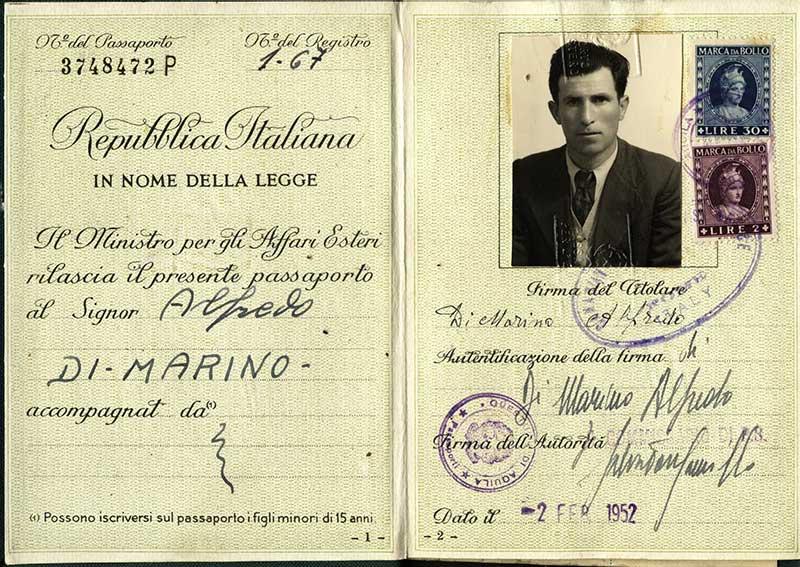 Nº del Passaporto Nº del Registro
3748472 P 1-67
Repubblica Italiana
IN NOME DELLA LEGGE
Il Ministro per gli Affari Esteri
rilascia il presente passaporto
al Signor Alfredo
DI-MARINO-
accompagnat da(1)
(1) Possono iscriversi sul passaporto i figli minori di 15 anni.
- 1 -
MARCA DA BOLLO
LIRE 30
MARCA DA BOLLO
LIRE 2
ITALY
Firma del Titolare
Di Marino Alfredo
Autentificazione della firma di
Di Marino Alfredo
Firma dell'Autorità
DI AQUILA
Dato il -2 FEB 1952
- 2 -